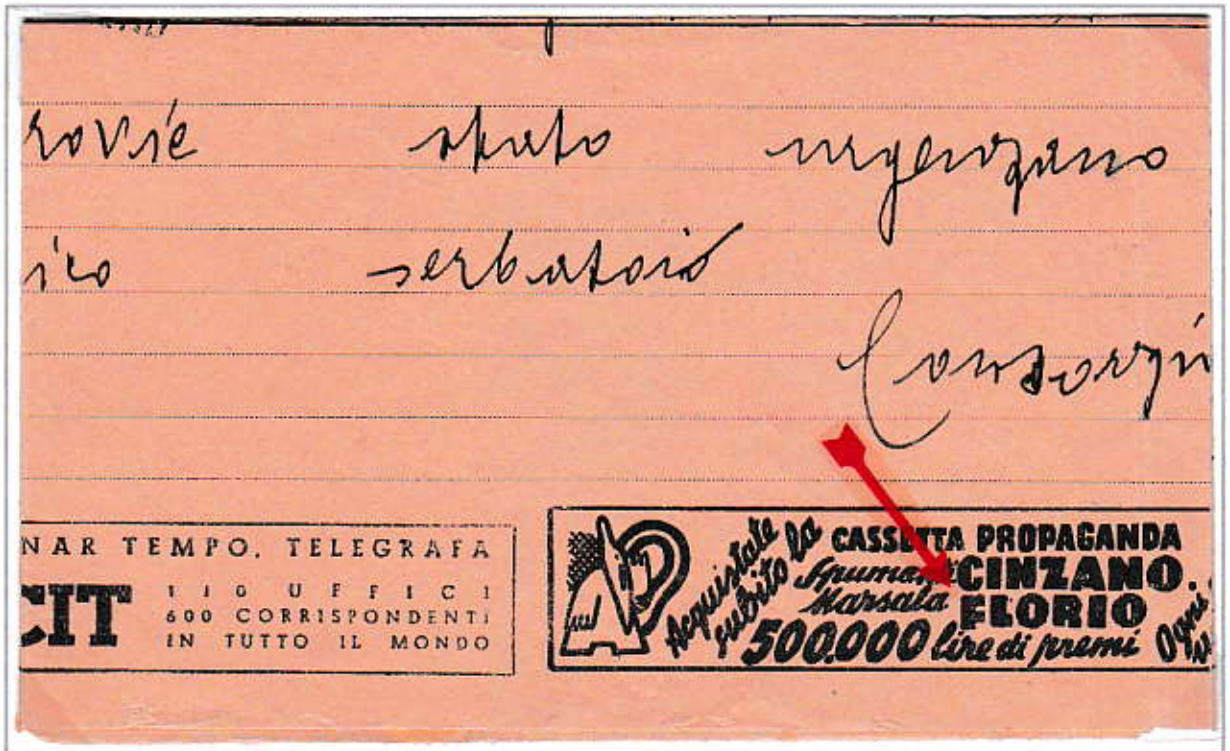 rovie stato
ico serbatoio
Consorzi
NAR TEMPO. TELEGRAFA
CIT
110 UFFICI
600 CORRISPONDENTI
IN TUTTO IL MONDO
Acquistate
subito la
CASSETTA PROPAGANDA
Spumante CINZANO.
Marsala FLORIO
500.000 lire di premi
Ogni